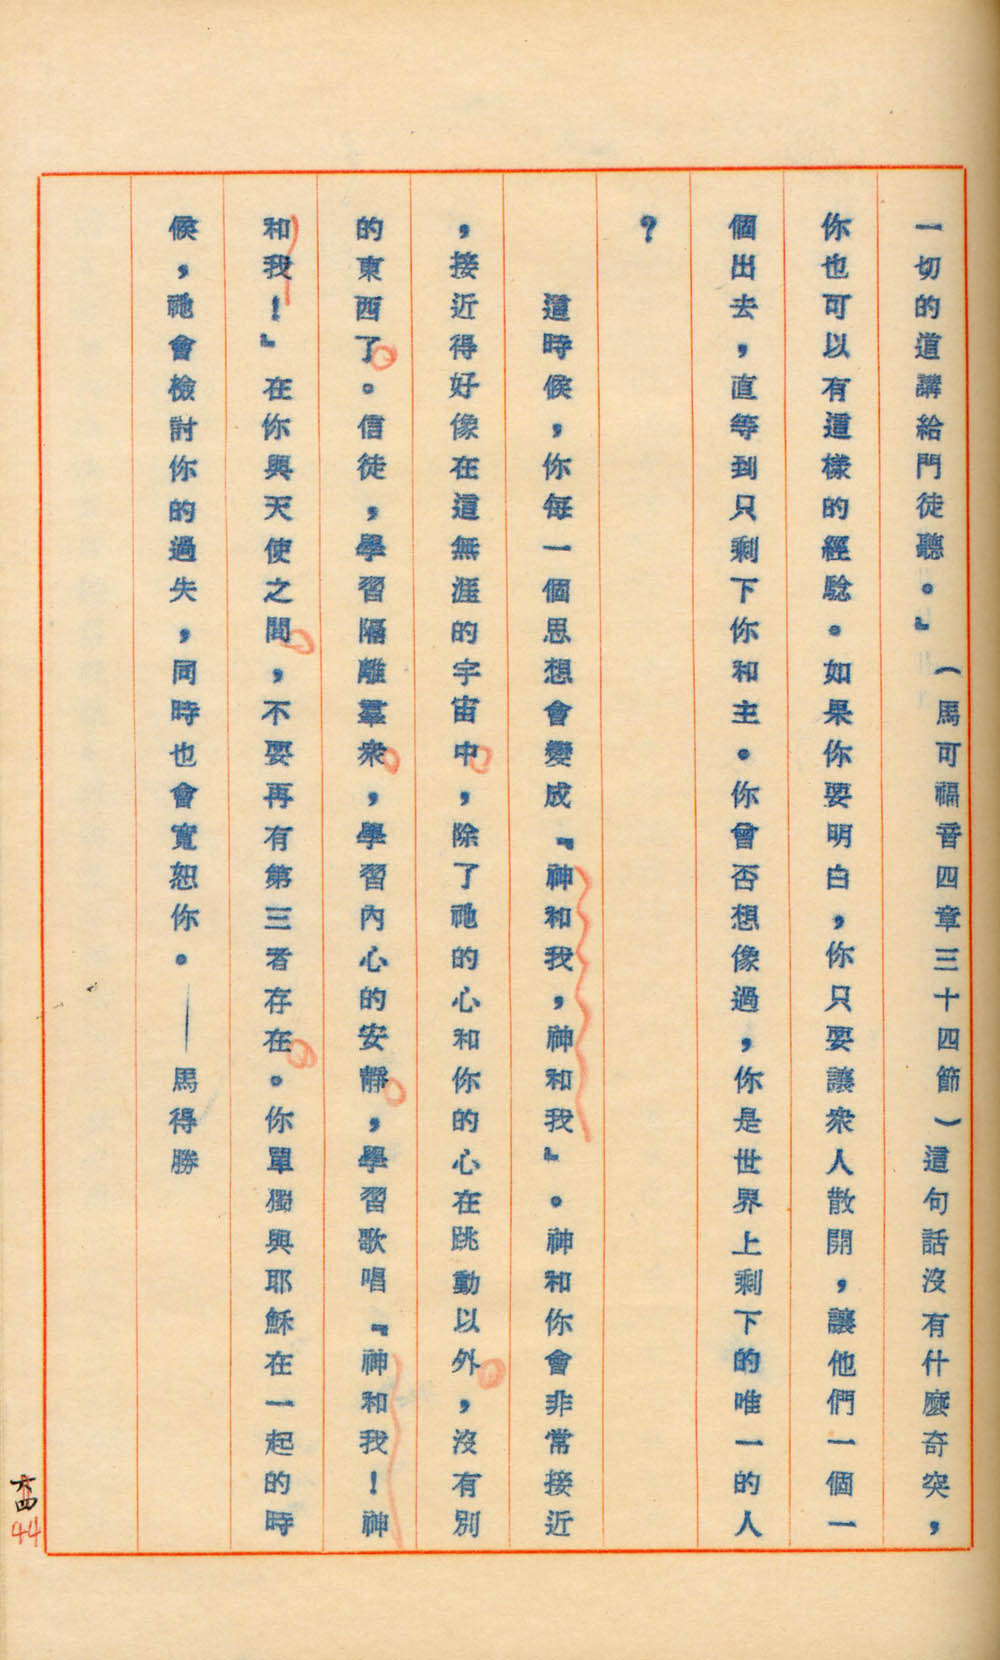 一切的道講給門徒聽。』（馬可福音四章三十四節）這句話沒有什麼奇突，
你也可以有這樣的經驗。如果你要明白，你只要讓衆人散開，讓他們一個一
個出去，直等到只剩下你和主。你曾否想像過，你是世界上剩下的唯一的人
？
這時候，你每一個思想會變成『神和我，神和我』。神和你會非常接近
，接近得好像在這無涯的宇宙中，除了祂的心和你的心在跳動以外，沒有別
的東西了。信徒，學習隔離羣衆，學習內心的安靜，學習歌唱『神和我！神
和我！』在你與天使之間，不要再有第三者存在。你單獨與耶穌在一起的時
候，祂會檢討你的過失，同時也會寬恕你。——馬得勝
六四
44